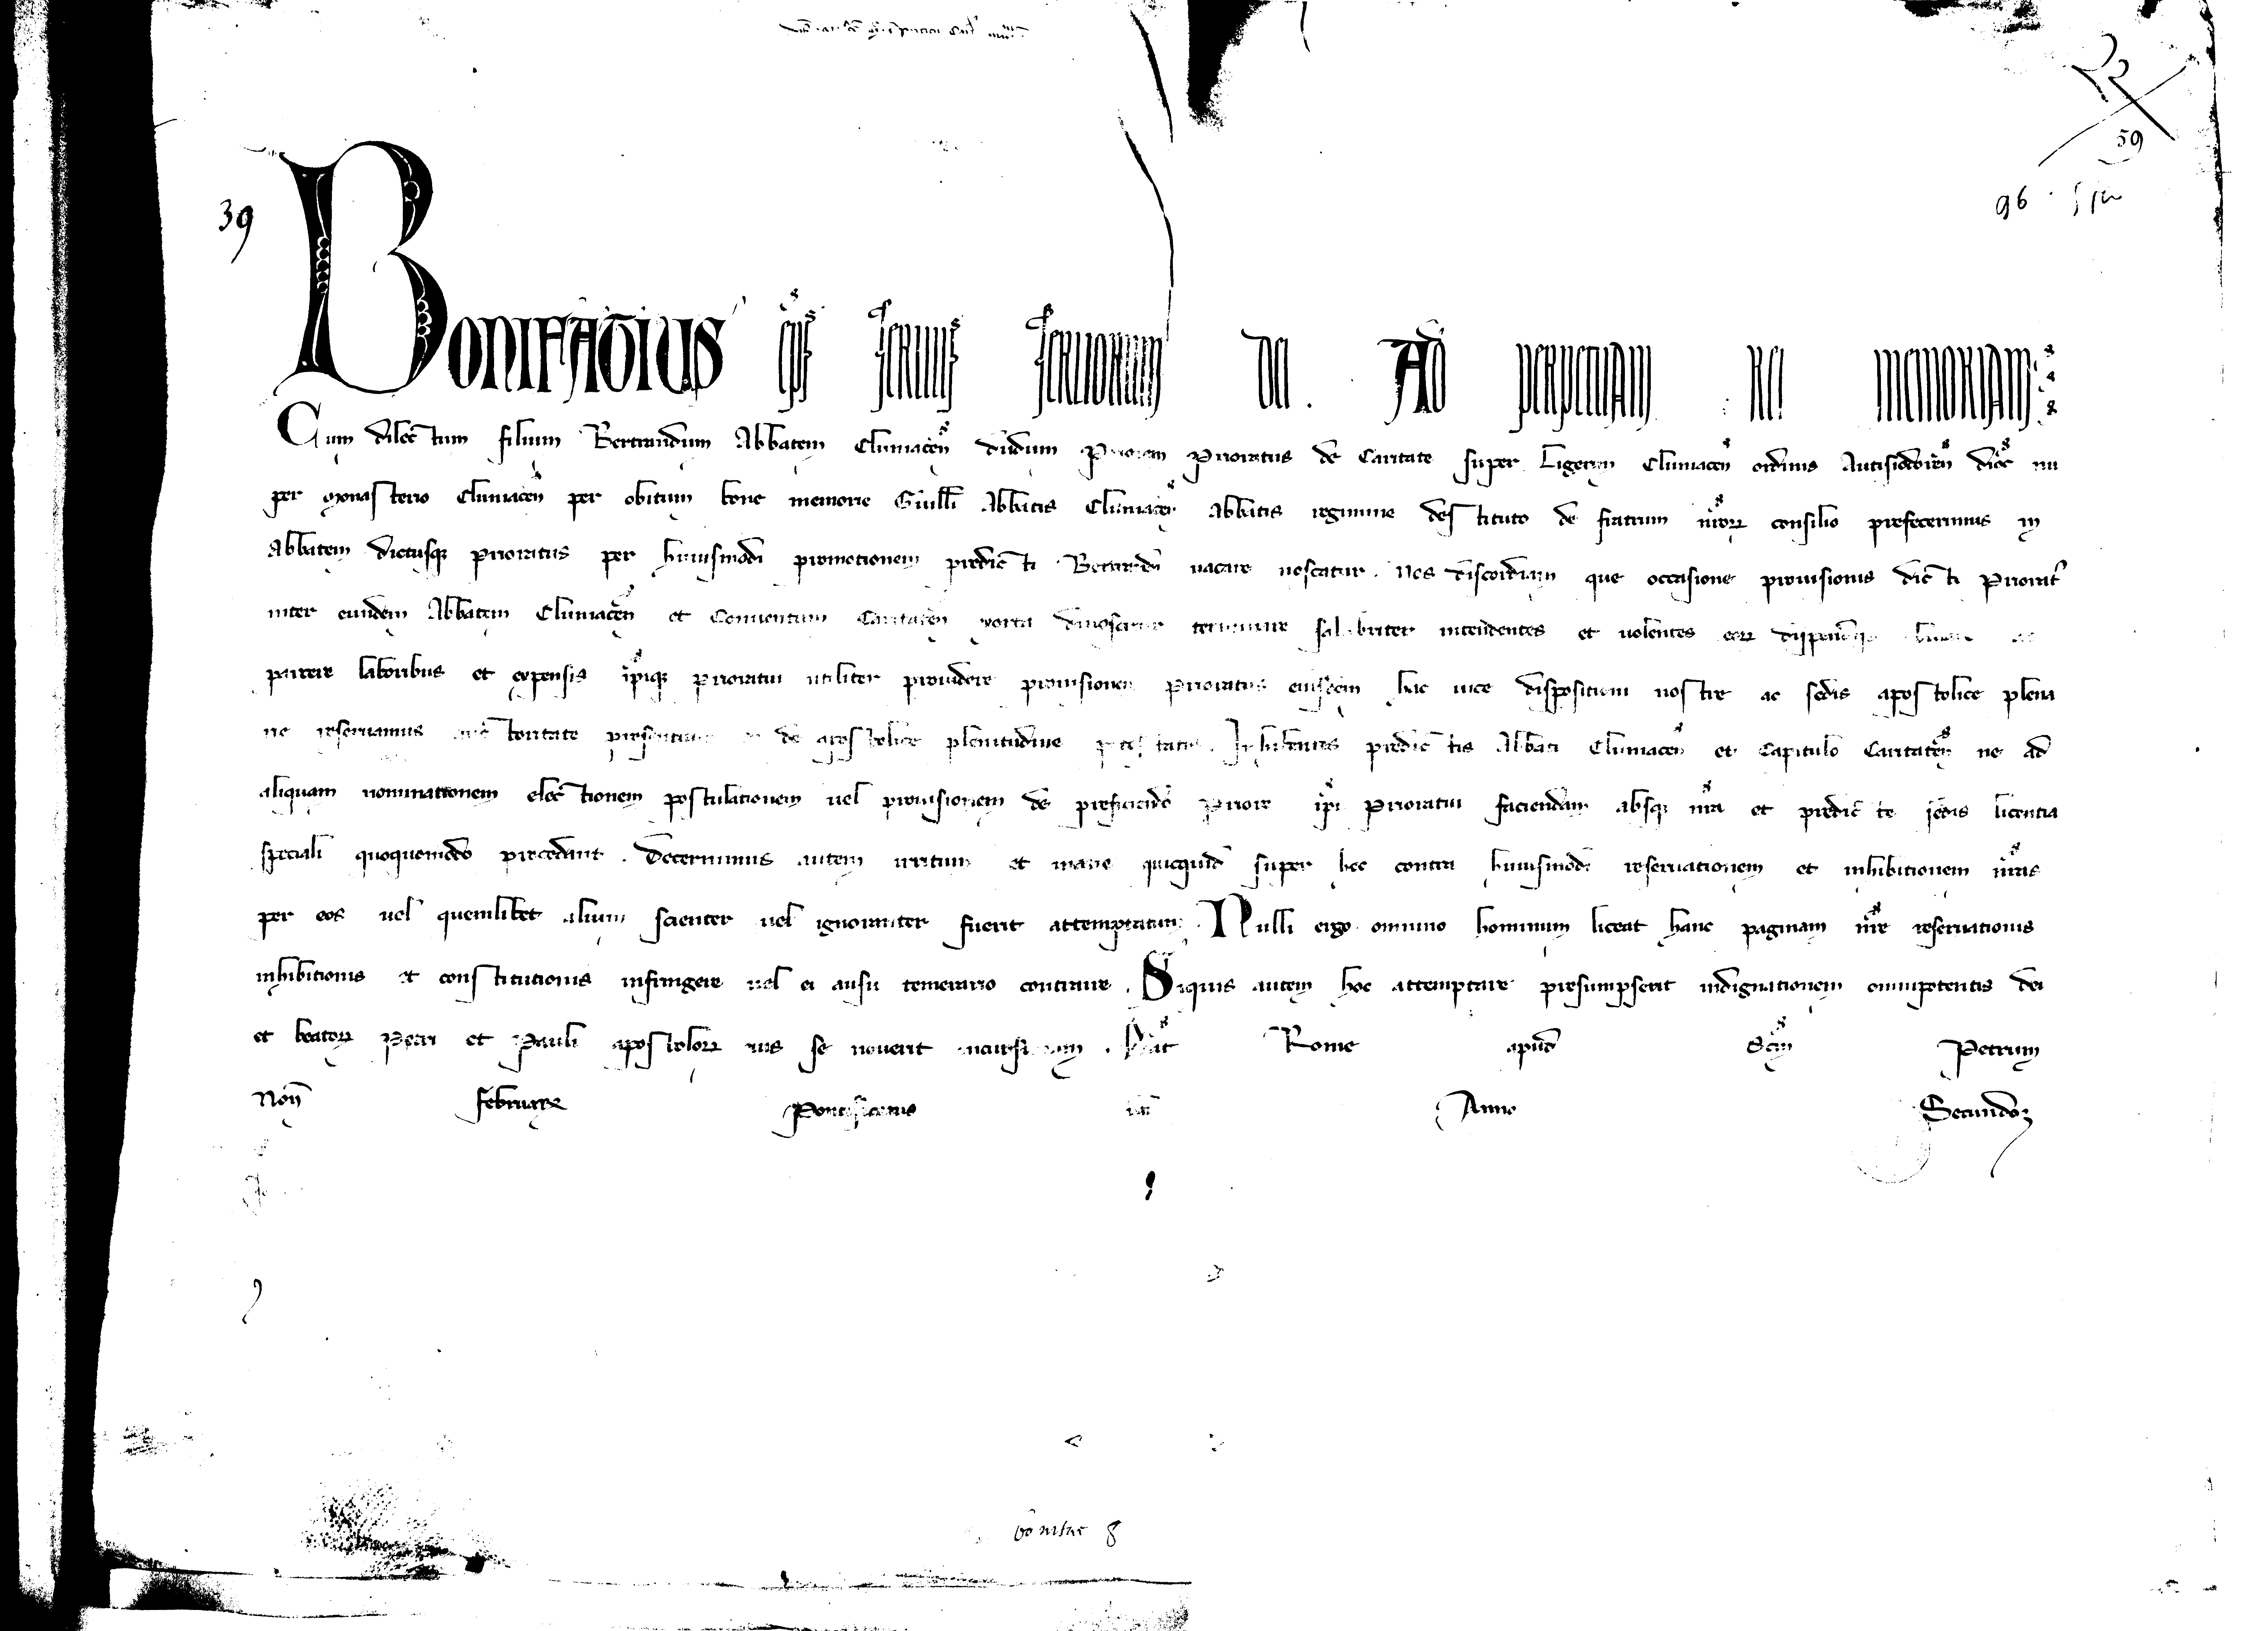 39
59
96
Bonifatius ep̄s seruus seruorum dei. Ad perpetuam rei memoriam.
Cum dilectum filium Bertrandum Abbatem Cluniacen̄ dudum Priorem Prioratus de Caritate super Ligerim Cluniacen̄ ordinis Autisiodoren̄ dioc̄ nu
per Monasterio Cluniacen̄ per obitum bone memorie Guill̄i Abbatis Cluniacen̄ Abbatis regimine destituto de fratrum nr̄oꝝ consilio prefecerimus in
Abbatem dictusqꝫ prioratus per huiusmodi promotionem predicti Bertrandi uacare noscatur. Nos discordiam que occasione prouisionis dicti Priorat̄
inter eundem Abbatem Cluniacen̄ et Conuentum Caritaten̄ orta dinoscitur terminare salubriter intendentes et uolentes eoꝝ dispendiis
parcere laboribus et expensis ip̄iqꝫ prioratui utiliter prouidere prouisionem Prioratus eiusdem hac uice dispositioni nostre ac sedis apostolice plena
rie reseruamus auctoritate presentium de apostolice plenitudine potestatis. Inhibentes predictis Abbati Cluniacen̄ et Capitulo Caritaten̄ ne ad
aliquam nominationem electionem postulationem uel prouisionem de preficiendo Priore ip̄i Prioratui faciendam absqꝫ nr̄a et predicte sedis licentia
speciali quoquomodo procedant. Decernimus autem irritum et inane quicquid super hoc contra huiusmodi reseruationem et inhibitionem nr̄as
per eos uel quemlibet alium scienter uel ignoranter fuerit attemptatum. Nulli ergo omnino hominum liceat hanc paginam nr̄e reseruationis
inhibitionis et constitutionis infringere uel ei ausu temerario contraire. Siquis autem hoc attemptare presumpserit indignationem omnipotentis dei
et beatoꝝ Petri et Pauli apostoloꝝ eius se nouerit incursurum. Dat̄ Rome apud Sc̄m Petrum
Non̄ Februarii Pontificatus nr̄i Anno Secundo